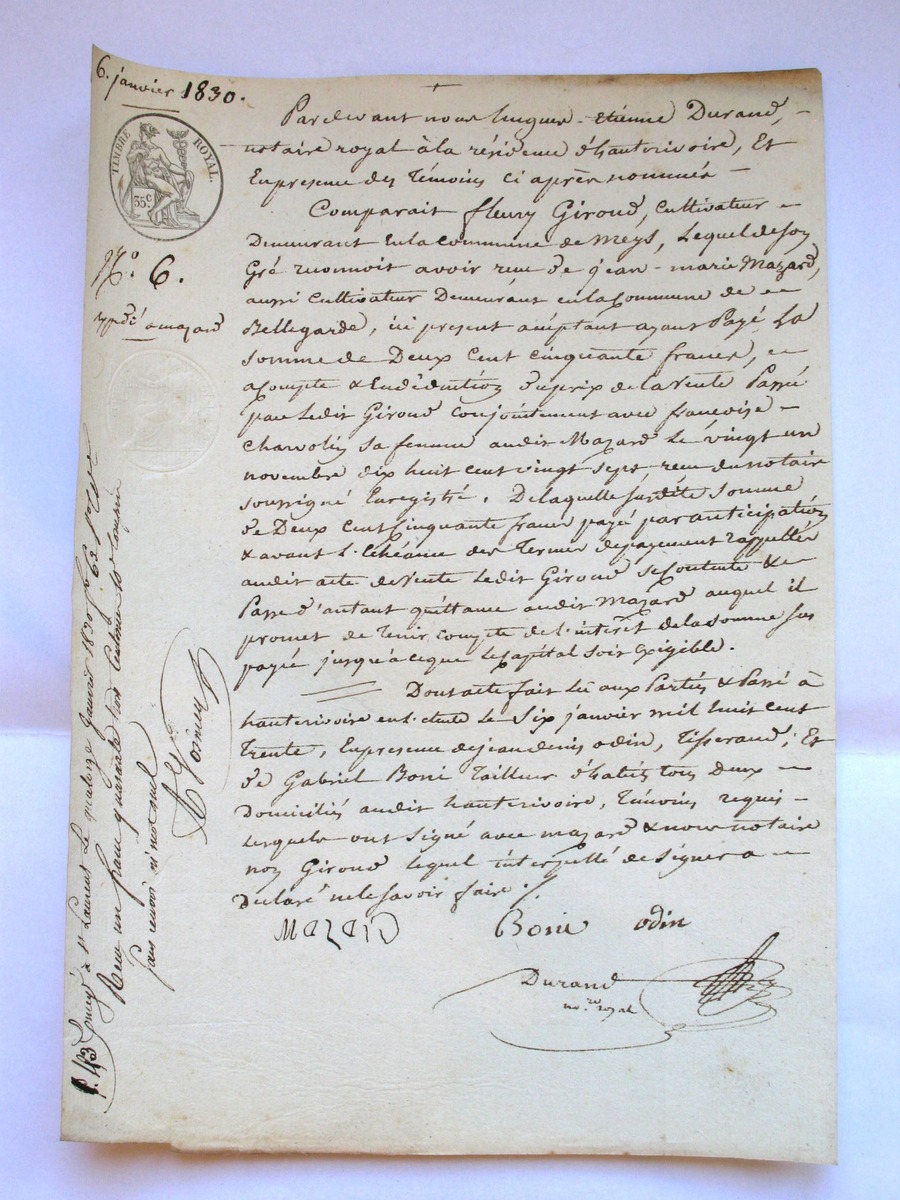 6. janvier 1830.
TIMBRE ROYAL.
35.c
No. 6.
expedié a mazard
Pardevant nous hugues - etienne Durand, -
notaire royal à la résidence d'hauterivoire, Et
En presence des Témoins ci après nommés -
Comparait fleury Giroud, Cultivateur -
Demeurant En la commune de meys, Lequel de son
Gré reconnoit avoir recu de jean - marie Mazard,
aussi Cultivateur Demeurant en la Commune de -
Bellegarde, ici present acceptant ayant Payé La
Somme de Deux Cent Cinquante francs,
acompte & En déduction du prix de la vente Passée
par Ledit Giroud Conjointement avec francoise -
Charvolin sa femme audit Mazard Le vingt un
novembre dix huit cent vingt sept recu du notaire
soussigné Enregistré. De laquelle susdite Somme
de Deux Cent Cinquante francs payé par anticipation
& avant l'échéance des Termes de payement rappellés
audit acte de vente Ledit Giroud se Contente &
Passe d'autant quittance audit Mazard auquel il
promet de Tenir compte de l'interêt de la somme sus
payée jusqu'à ceque le Capital soit Exigible.
Dont acte fait Lu aux Parties & Passé à
hauterivoire en l'étude le Six janvier mil huit Cent
Trente, En presence de jean denis odin, Tisserand, Et
de Gabriel Boni Tailleur d'habits tous Deux -
Domiciliés audit hauterivoire, Témoins requis -
Lesquels ont Signé avec mazard & nous notaire
non Giroud lequel interpellé de Signer a -
Déclaré ne le Savoir faire ./.
MAZARD Boni odin
Durand
no.re royal
Enregé à st Laurent Le quatorze janvier 1830 fo 63
Recu un franc quarante trois Centimes
sans renvoi ni mot nul
1.43